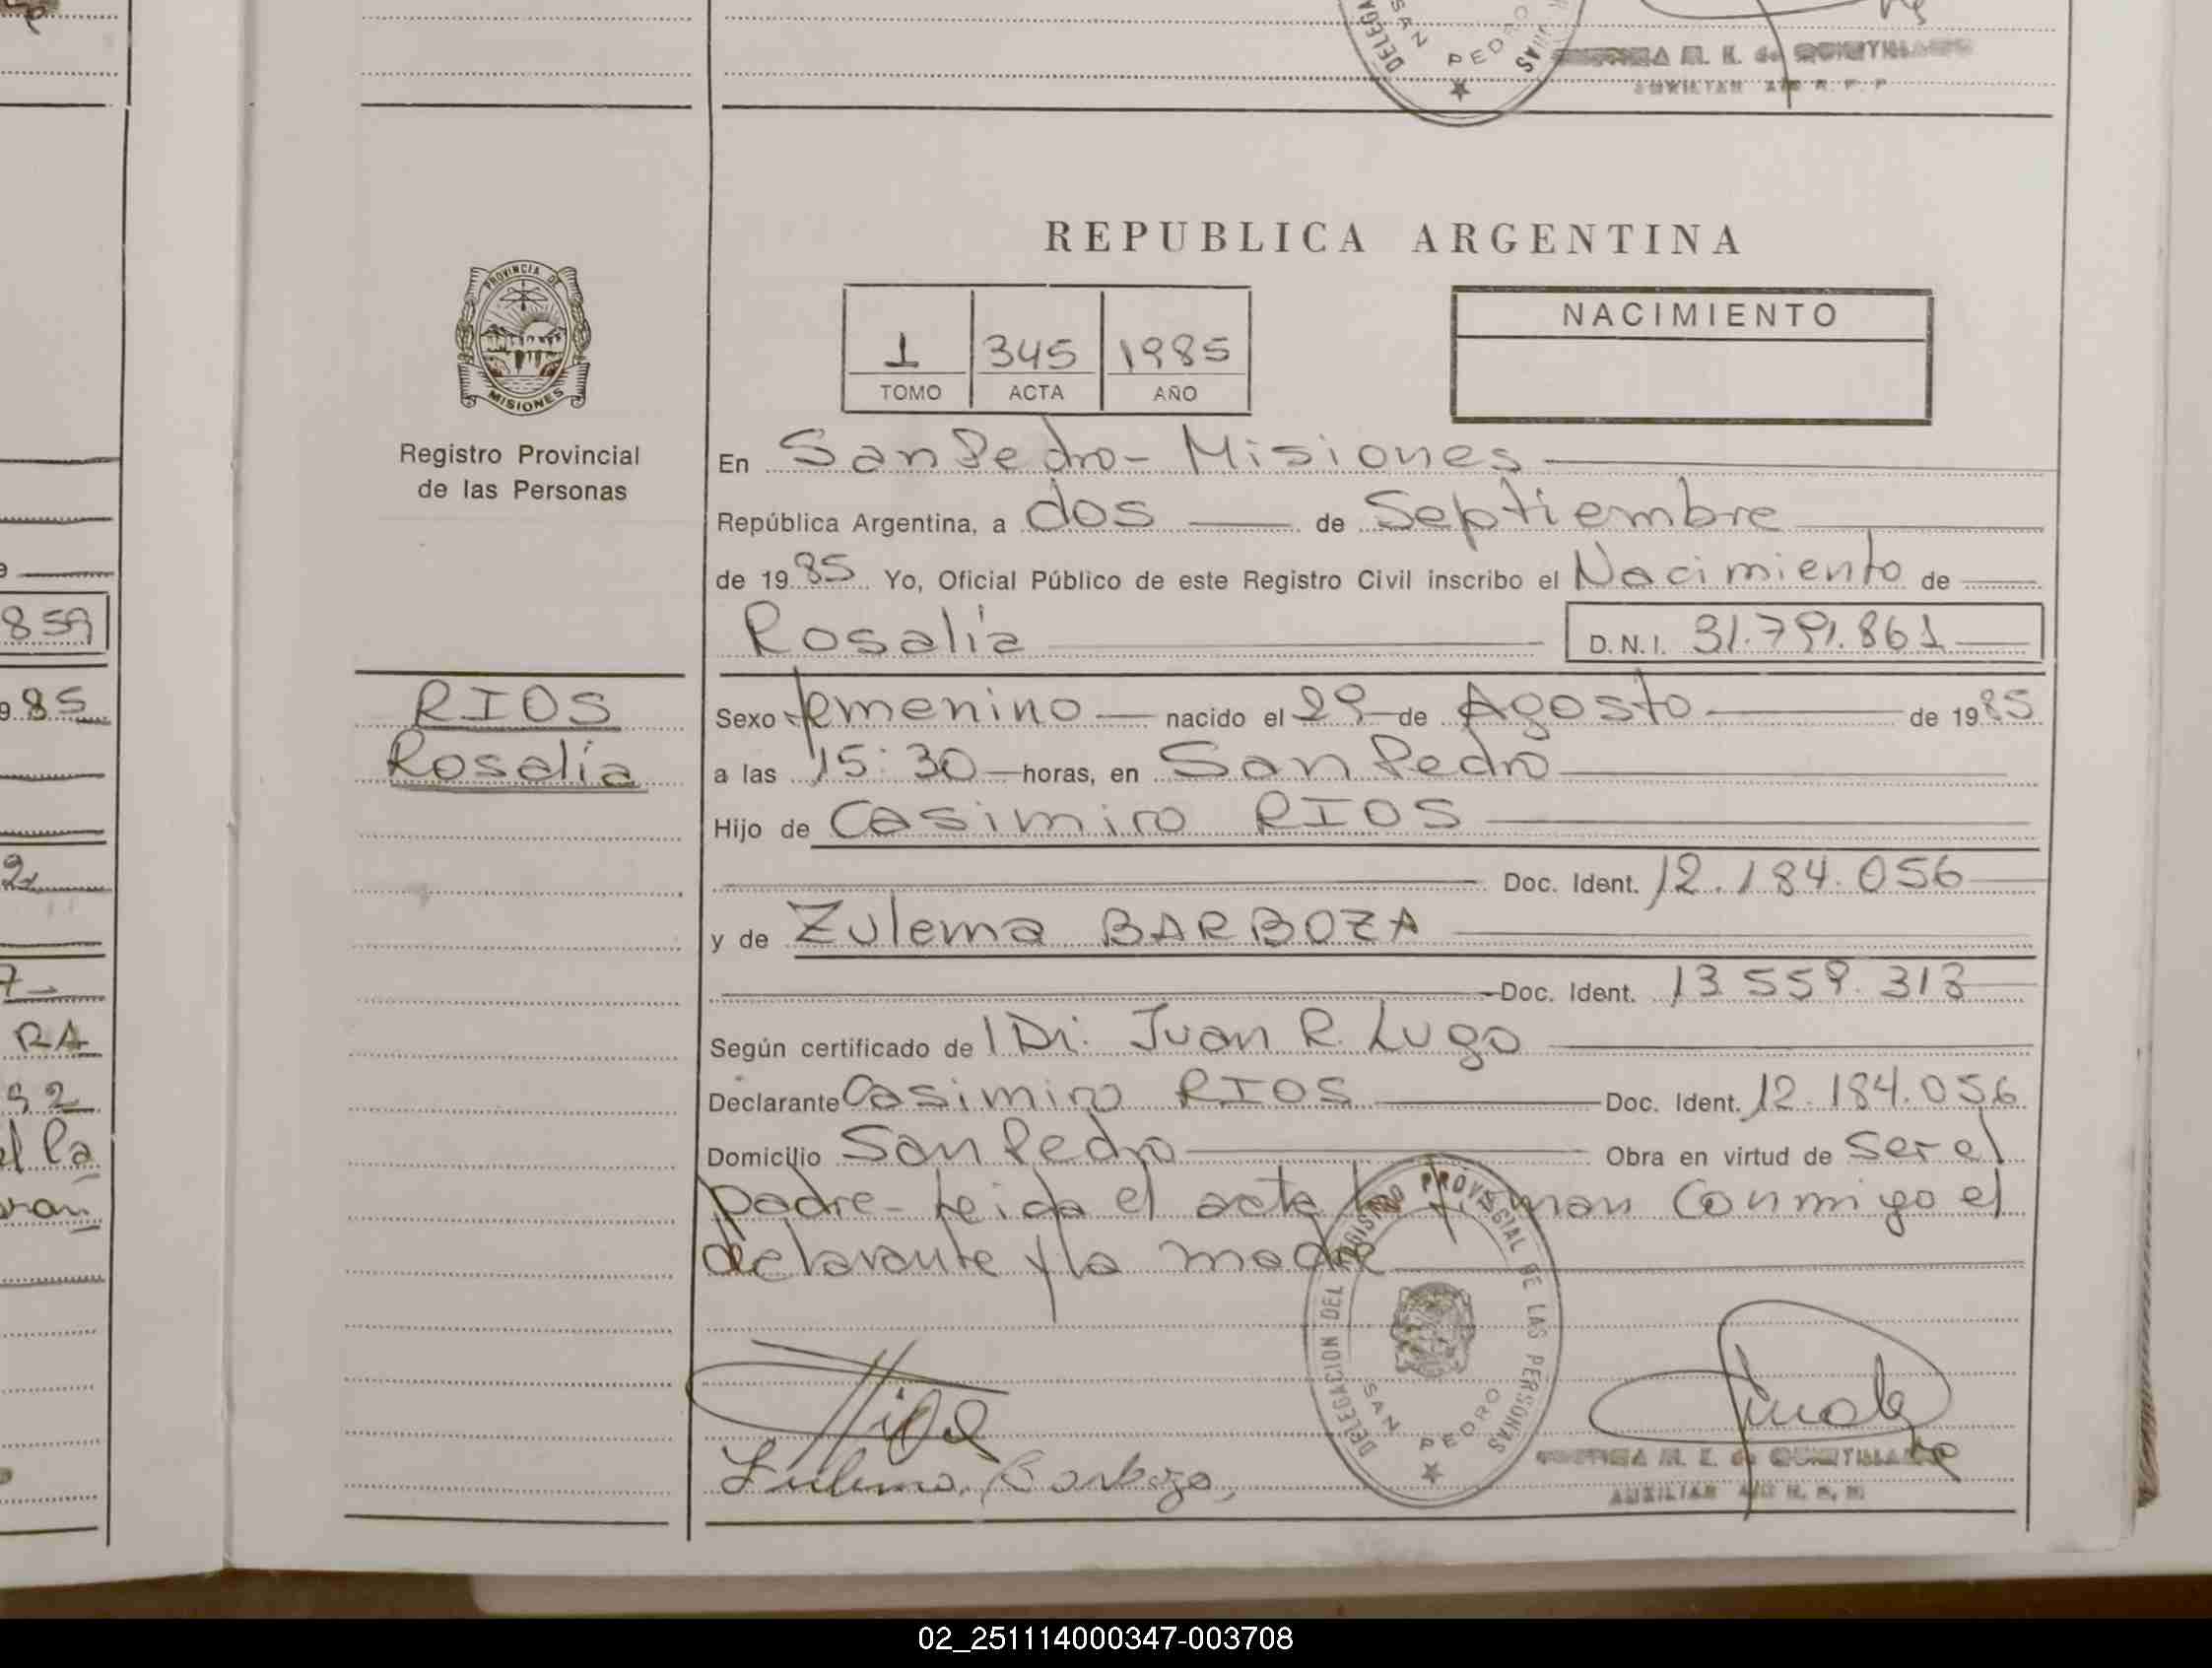 DELEGA
SAN PEDRO
NAS
M. E. de QUINTILLANO
REPUBLICA ARGENTINA
PROVINCIA DE
MISIONES
Registro Provincial
de las Personas
1 345 1985
TOMO ACTA AÑO
NACIMIENTO
En San Pedro - Misiones
República Argentina, a dos de Septiembre
de 1985 Yo, Oficial Público de este Registro Civil inscribo el Nacimiento de
Rosalía D.N.I. 31.791.861
859
985
2
7
RA
92
el la
RIOS
Rosalía
Sexo femenino nacido el 29 de Agosto de 1985
a las 15:30 horas, en San Pedro
Hijo de Casimiro RIOS
Doc. Ident. 12.184.056
y de Zulema BARBOZA
Doc. Ident. 13.559.313
Según certificado de Dr. Juan R. Lugo
Declarante Casimiro RIOS Doc. Ident. 12.184.056
Domicilio San Pedro Obra en virtud de ser el
padre - Leida el acta la firman conmigo el
declarante y la madre
DELEGACION DEL REGISTRO PROVINCIAL DE LAS PERSONAS
SAN PEDRO
Zulema Barboza
M. E. de QUINTILLANO
AUXILIAR
02_251114000347-003708